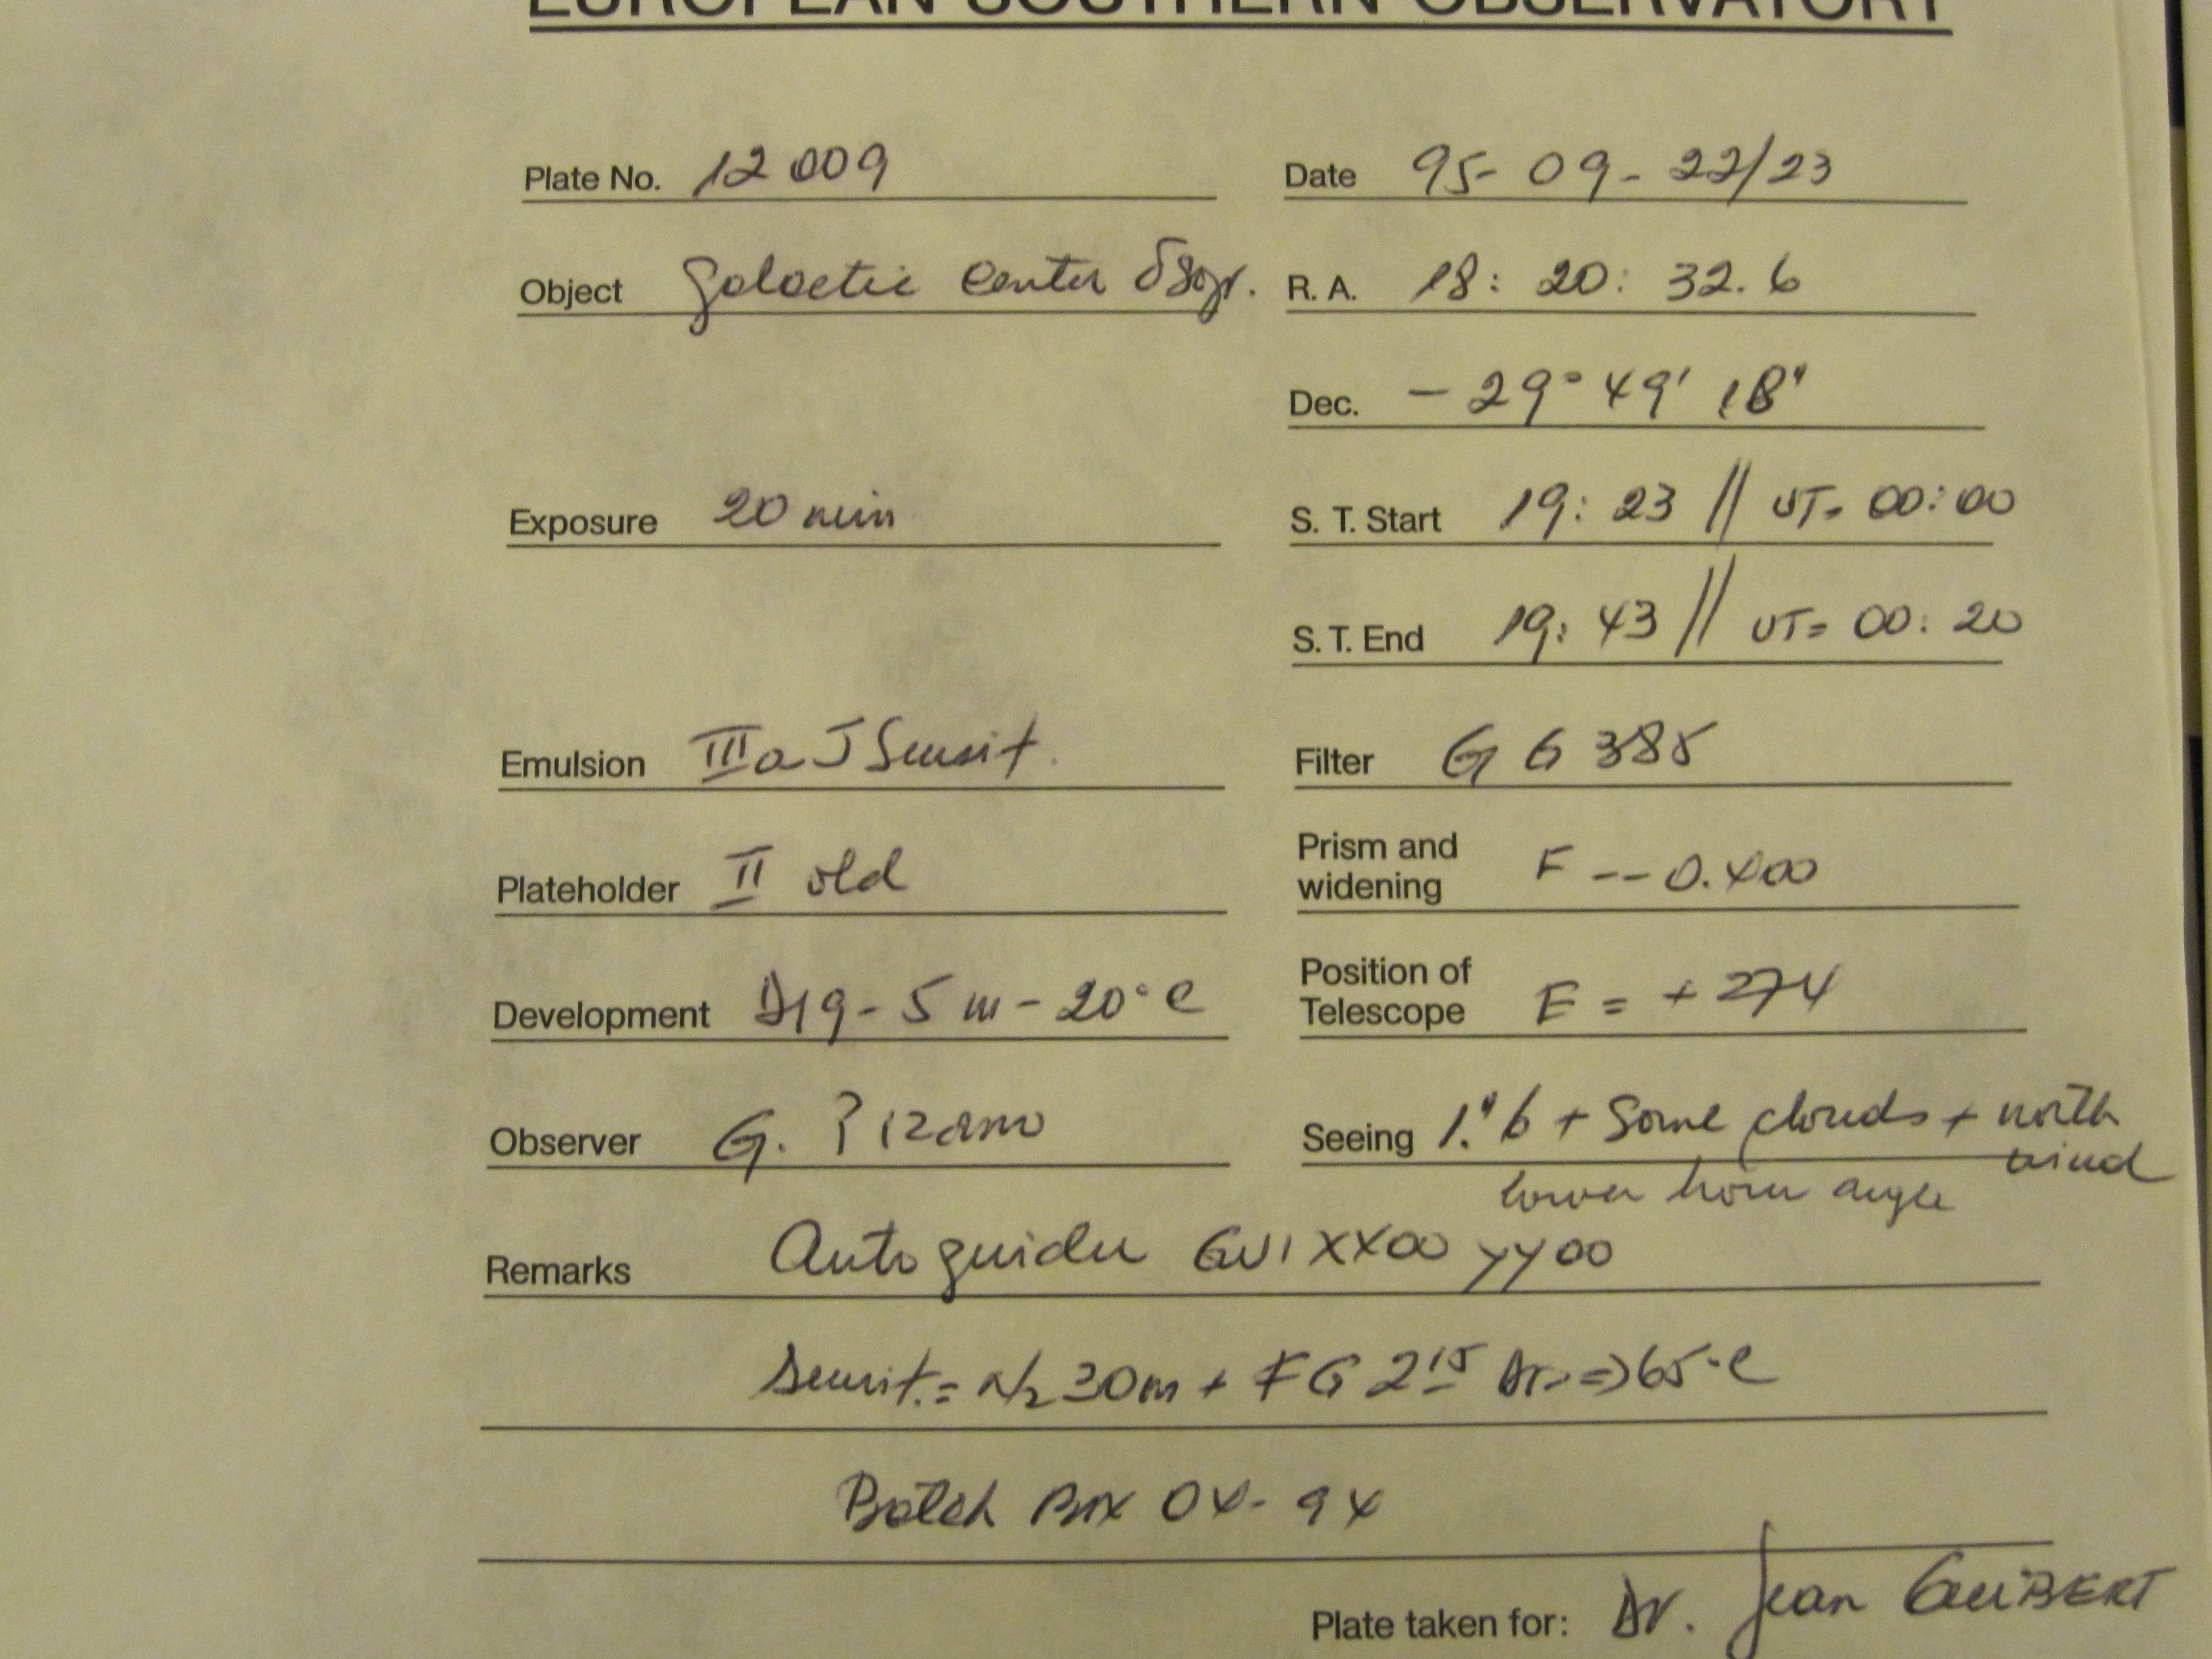 EUROPEAN SOUTHERN OBSERVATORY
Plate No. 12009 Date 95-09-22/23
Object Galactic Center δSgr. R. A. 18: 20: 32.6
Dec. -29° 49' 18"
Exposure 20 min S. T. Start 19: 23 // UT= 00:00
S. T. End 19: 43 // UT= 00: 20
Emulsion IIIa J Sensit. Filter GG 385
Plateholder II old Prism and widening F -- 0.400
Development D19 - 5 m - 20°C Position of Telescope E = +274
Observer G. Pizarro Seeing 1."6 + Some clouds + north wind
lower hour angle
Remarks Autoguider GUI XX00 YY00
Sensit. = N2 30m + FG 2 15 => 65°C
Batch Box 04-94
Plate taken for: Dr. Jean GUIBERT